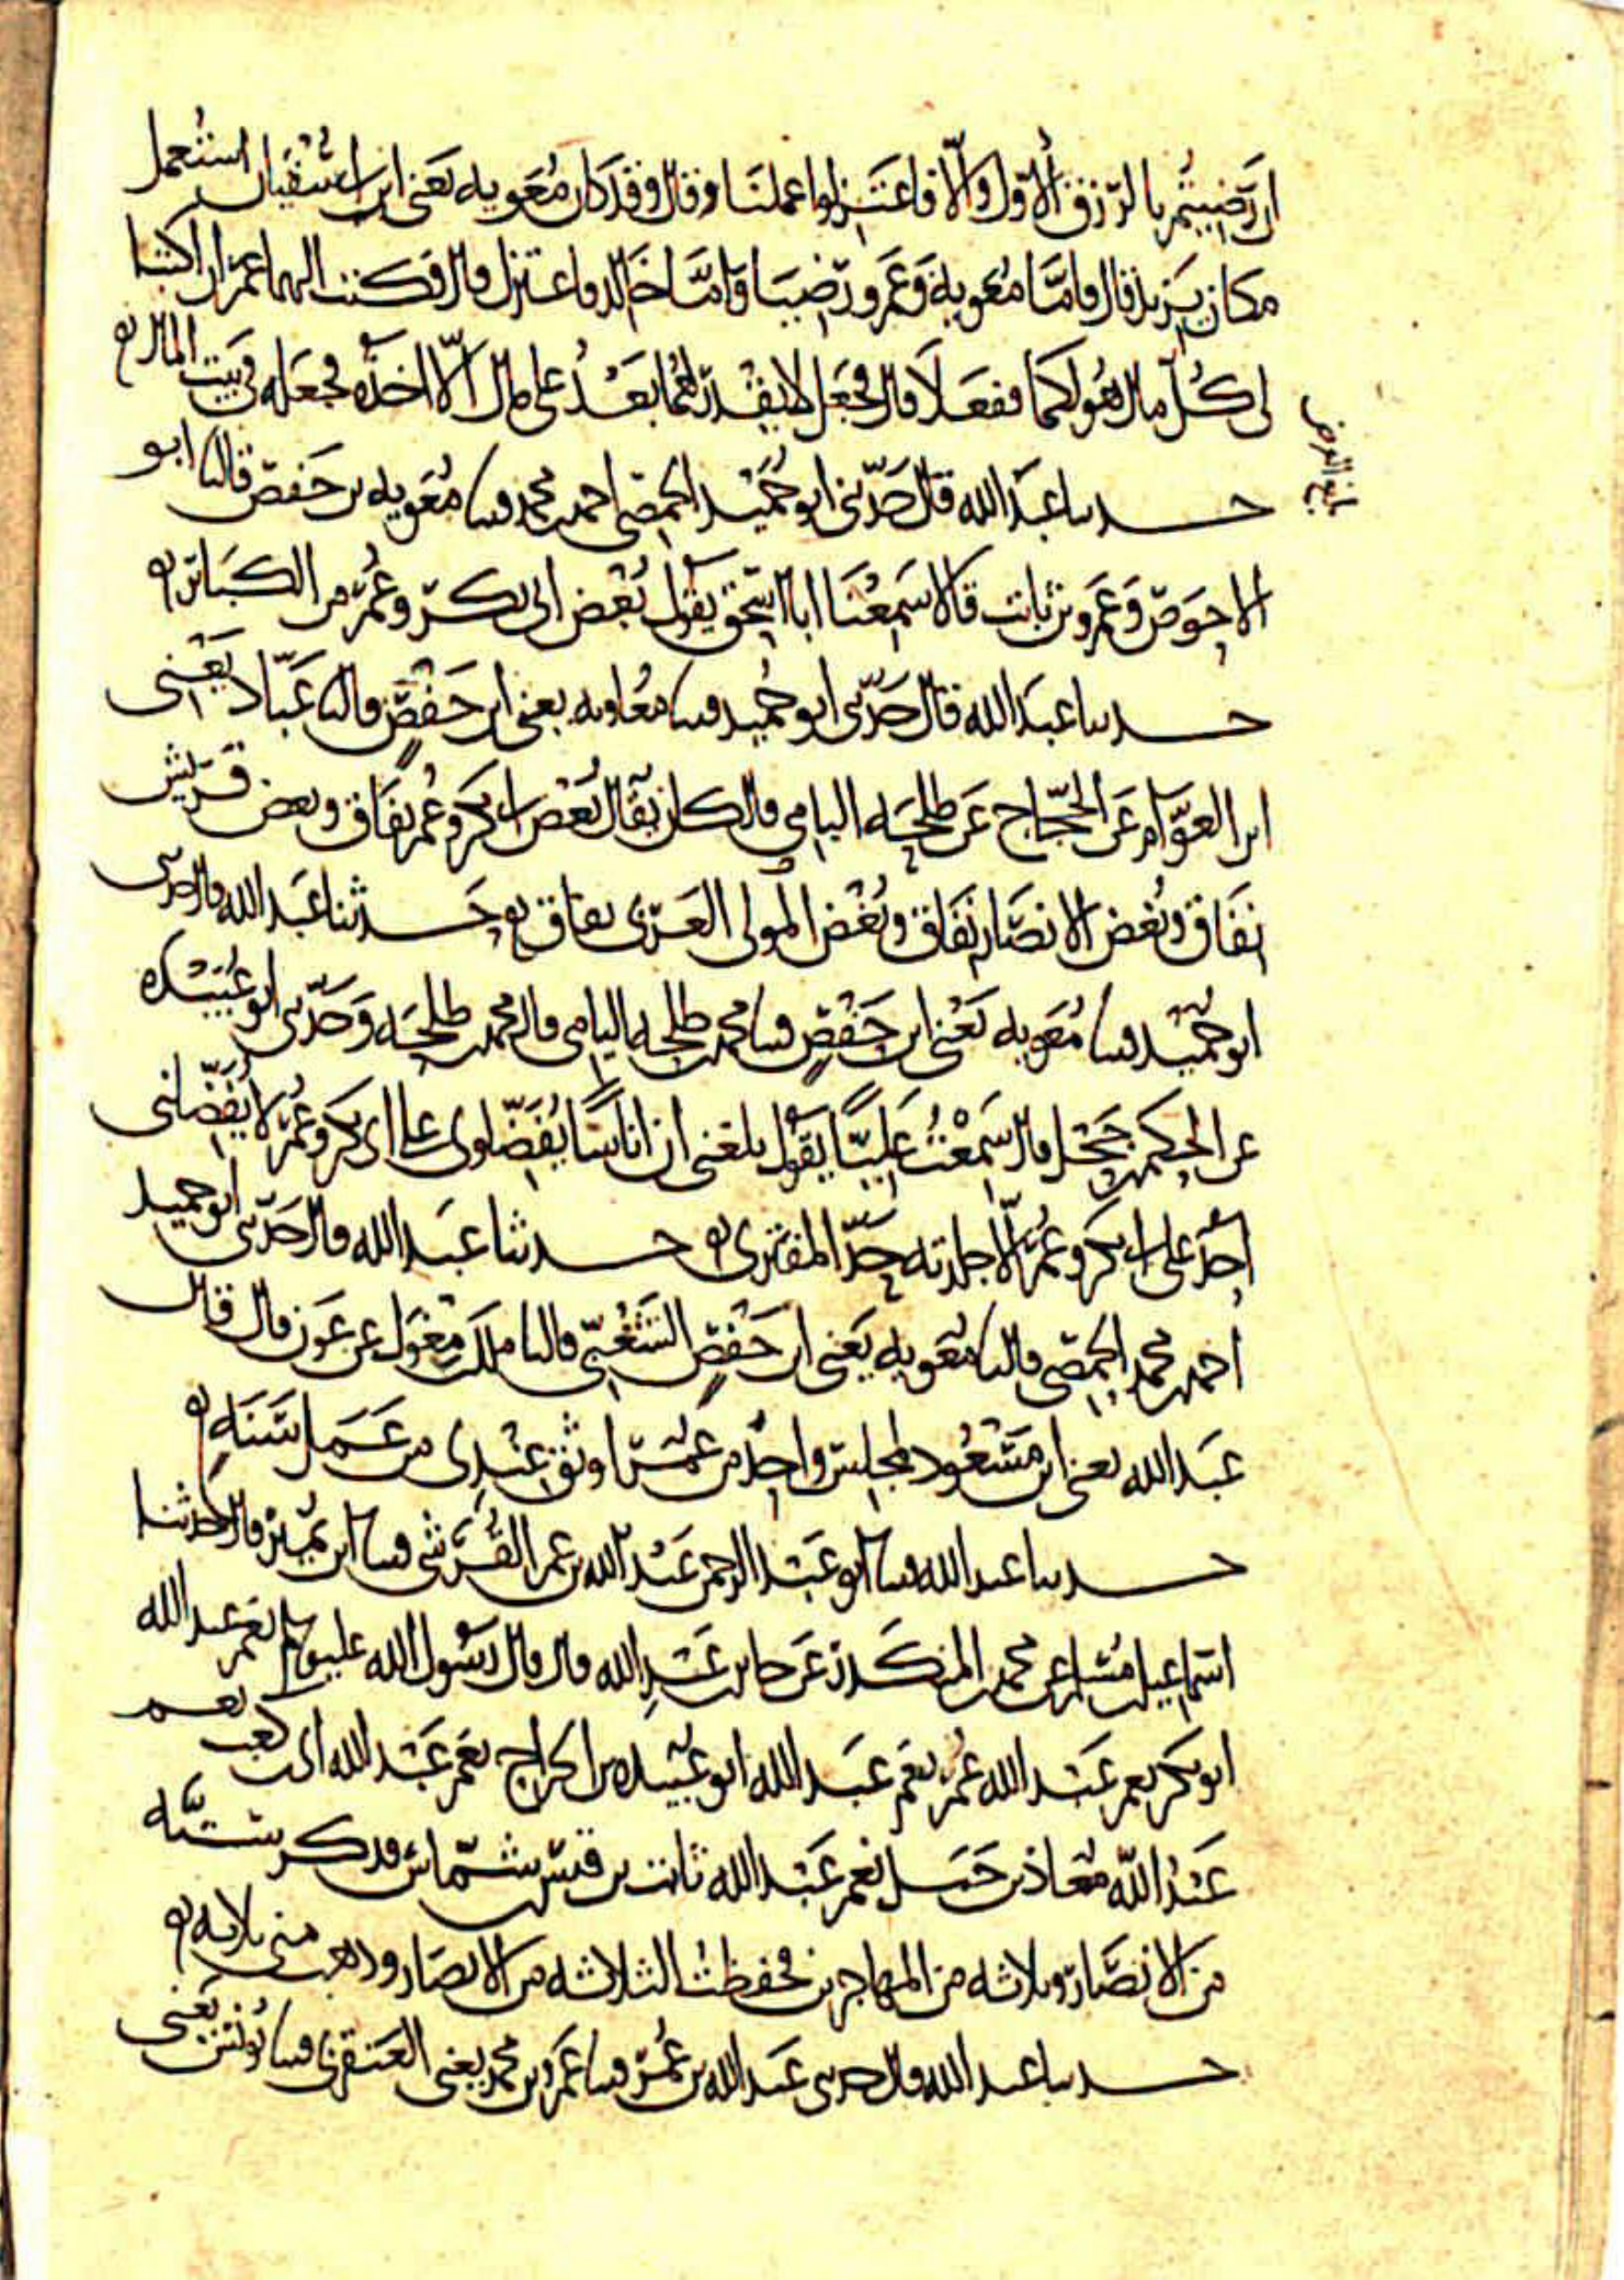 ان رضيتم بالرزق الأول والا فاعتزلوا عملنا وقال وقد كان معويه يعنى ابن ابى سفيان استعمل
مكان يزيد قال فاما معويه وعمرو رضيا واما خالد فاعتزل قال فكتب اليهما عمر ان اكتبا
لى كل مال هو لكما ففعلا قال فجعل لا يقدر لهما بعد على مال الا اخذه فجعله فى بيت المال
حدثنا عبد الله قال حدثنى ابو حميد الحمصى احمد بن محمد وثنا معويه بن حفص قال ثنا ابو
الاحوص وعمرو بن ثابت قالا سمعنا ابا اسحق يقول بغض ابى بكر وعمر من الكبائر
حدثنا عبد الله قال حدثنى ابو حميد وثنا معاويه يعنى ابن حفص قال ثنا عباد يعنى
ابن العوام عن الحجاج عن طلحه اليامى قال كان يقال بغض ابى بكر وعمر نفاق وبغض قريش
نفاق وبغض الانصار نفاق وبغض المولى العربى نفاق حدثنا عبد الله قال حدثنى
ابو حميد وثنا معويه يعنى ابن حفص وثنا محمد بن طلحه اليامى قال محمد بن طلحه وحدثنى ابو عبيده
عن الحكم بن جحل قال سمعت عليا يقول بلغنى ان اناسا يفضلونى على ابى بكر وعمر لا يفضلنى
احد على ابى بكر وعمر الا جلدته حد المفترى حدثنا عبد الله قال حدثنى ابو حميد
احمد بن محمد الحمصى قال ثنا معويه يعنى ابن حفص الشعبى قال ثنا ملك بن مغول عن عون قال قال
عبد الله يعنى ابن مسعود لمجلس واحد من عمر اوثق عندى من عمل سنه
حدثنا عبد الله وثنا ابو عبد الرحمن عبد الله بن عمر القرشى وثنا ابن نمير قال حدثنا
اسماعيل بن مسلم عن محمد بن المنكدر عن جابر بن عبد الله قال قال رسول الله صلى الله عليه وسلم نعم عبد الله
ابو بكر نعم عبد الله عمر نعم عبد الله ابو عبيده بن الجراح نعم عبد الله ابى بن كعب نعم
عبد الله معاذ بن جبل نعم عبد الله ثابت بن قيس بن شماس فذكر سته
من الانصار وثلاثه من المهاجرين فحفظت الثلاثه من الانصار وذهب منى ثلاثه
حدثنا عبد الله قال حدثنى عبد الله بن عمر وثنا عمرو بن محمد يعنى العنقزى وثنا يونس يعنى